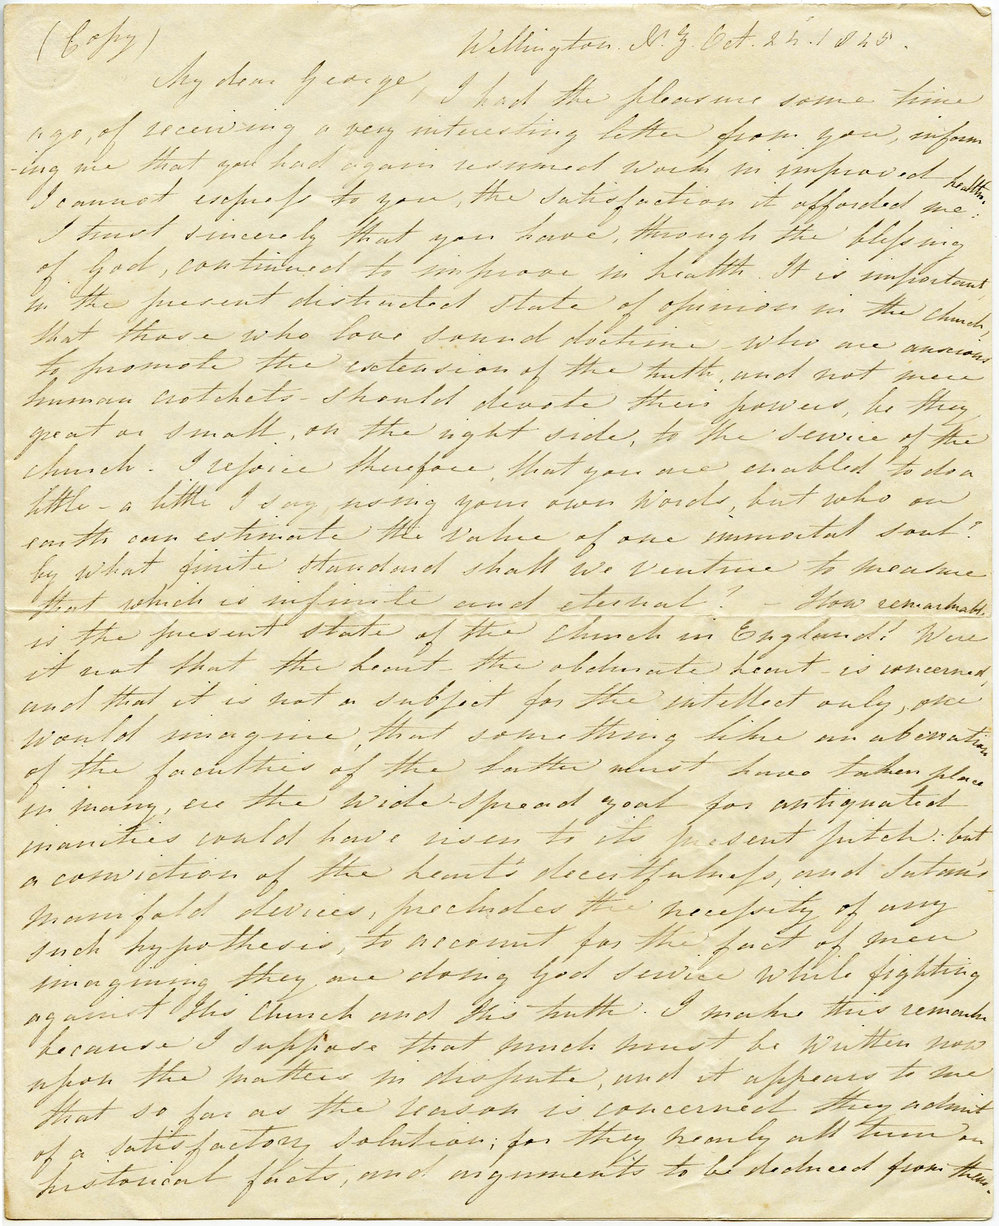 (Copy) Wellington. N. Z. Oct. 24. 1845.
My dear George, I had the pleasure some time
ago, of receiving a very interesting letter from you, inform
-ing me that you had again resumed work in improved health.
I cannot express to you, the satisfaction it afforded me:
I trust sincerely that you have, through the blessing
of God, continued to improve in health. It is important,
in the present distracted state of opinion in the church,
that those who love sound doctrine - who are anxious
to promote the extension of the truth, and not mere
human crotchets - should devote their powers, be they
great or small, on the right side, to the service of the
church - I rejoice therefore, that you are enabled to do a
little - a little I say, using your own words, but who on
earth can estimate the value of one immortal soul?
by what finite standard shall we venture to measure
that which is infinite and eternal? - How remarkable
is the present state of the church in England! Were
it not that the heart - the obdurate heart - is concerned,
and that it is not a subject for the intellect only, one
would imagine, that something like an aberration
of the faculties of the latter must have taken place
in many, ere the wide-spread zeal for antiquated
inanities could have risen to its present pitch: but
a conviction of the heart's deceitfulness, and Satan's
manifold devices, precludes the necessity of any
such hypothesis, to account for the fact of men
imagining they are doing God service while fighting
against His Church and His truth. I make this remark
because I suppose that much must be written now
upon the matters in dispute, and it appears to me
that so far as the reason is concerned they admit
of a satisfactory solution; for they nearly all turn on
historical facts, and arguments to be deduced from them.